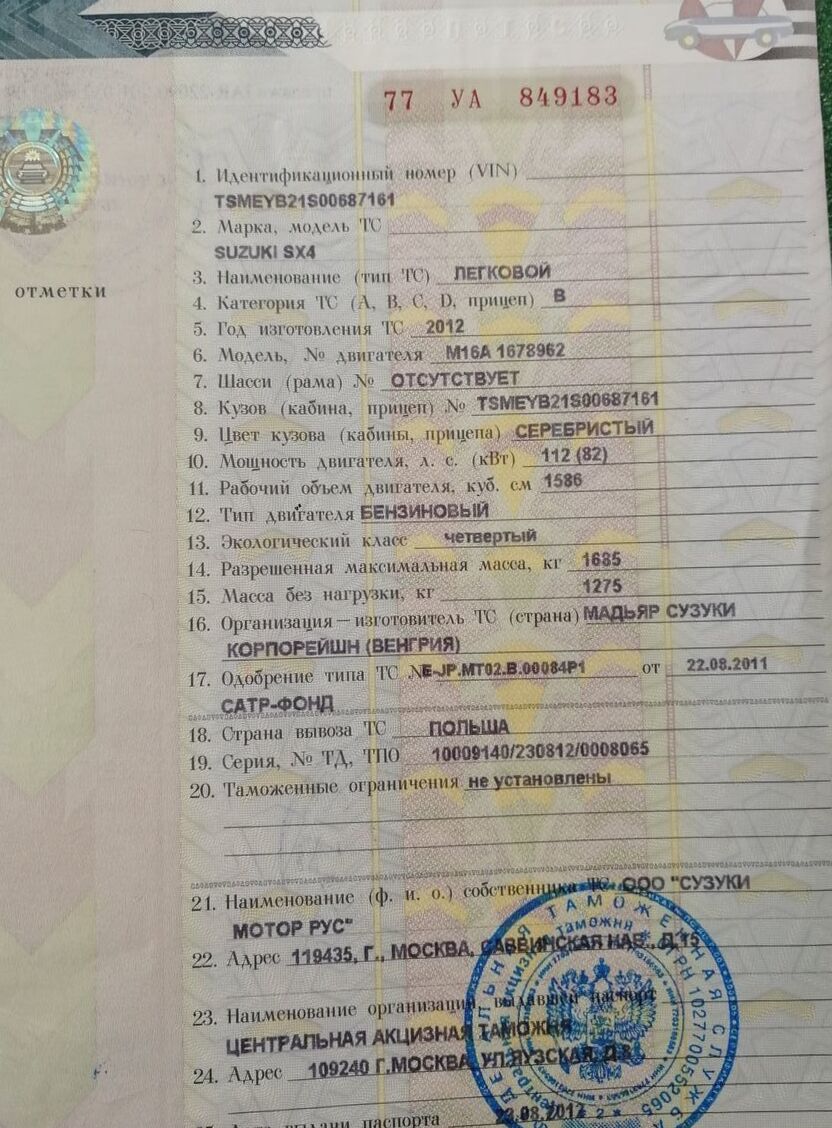 77 УА 849183
отметки
1. Идентификационный номер (VIN)
TSMEYB21S00687161
2. Марка, модель ТС
SUZUKI SX4
3. Наименование (тип ТС) ЛЕГКОВОЙ
4. Категория ТС (А, В, С, D, прицеп) В
5. Год изготовления ТС 2012
6. Модель, № двигателя M16A 1678962
7. Шасси (рама) № ОТСУТСТВУЕТ
8. Кузов (кабина, прицеп) № TSMEYB21S00687161
9. Цвет кузова (кабины, прицепа) СЕРЕБРИСТЫЙ
10. Мощность двигателя, л. с. (кВт) 112 (82)
11. Рабочий объем двигателя, куб. см 1586
12. Тип двигателя БЕНЗИНОВЫЙ
13. Экологический класс четвертый
14. Разрешенная максимальная масса, кг 1685
15. Масса без нагрузки, кг 1275
16. Организация – изготовитель ТС (страна) МАДЬЯР СУЗУКИ
КОРПОРЕЙШН (ВЕНГРИЯ)
17. Одобрение типа ТС № E-JP.MT02.B.00084P1 от 22.08.2011
САТР-ФОНД
18. Страна вывоза ТС ПОЛЬША
19. Серия, № ТД, ТПО 10009140/230812/0008065
20. Таможенные ограничения не установлены
21. Наименование (ф. и. о.) собственника ТС ООО "СУЗУКИ
МОТОР РУС"
22. Адрес 119435, Г., МОСКВА, САВВИНСКАЯ НАБ., Д.15
23. Наименование организации, выдавшей паспорт
ЦЕНТРАЛЬНАЯ АКЦИЗНАЯ ТАМОЖНЯ
24. Адрес 109240 Г.МОСКВА, УЛ.ЯУЗСКАЯ, Д.8
выдачи паспорта 23.08.2012